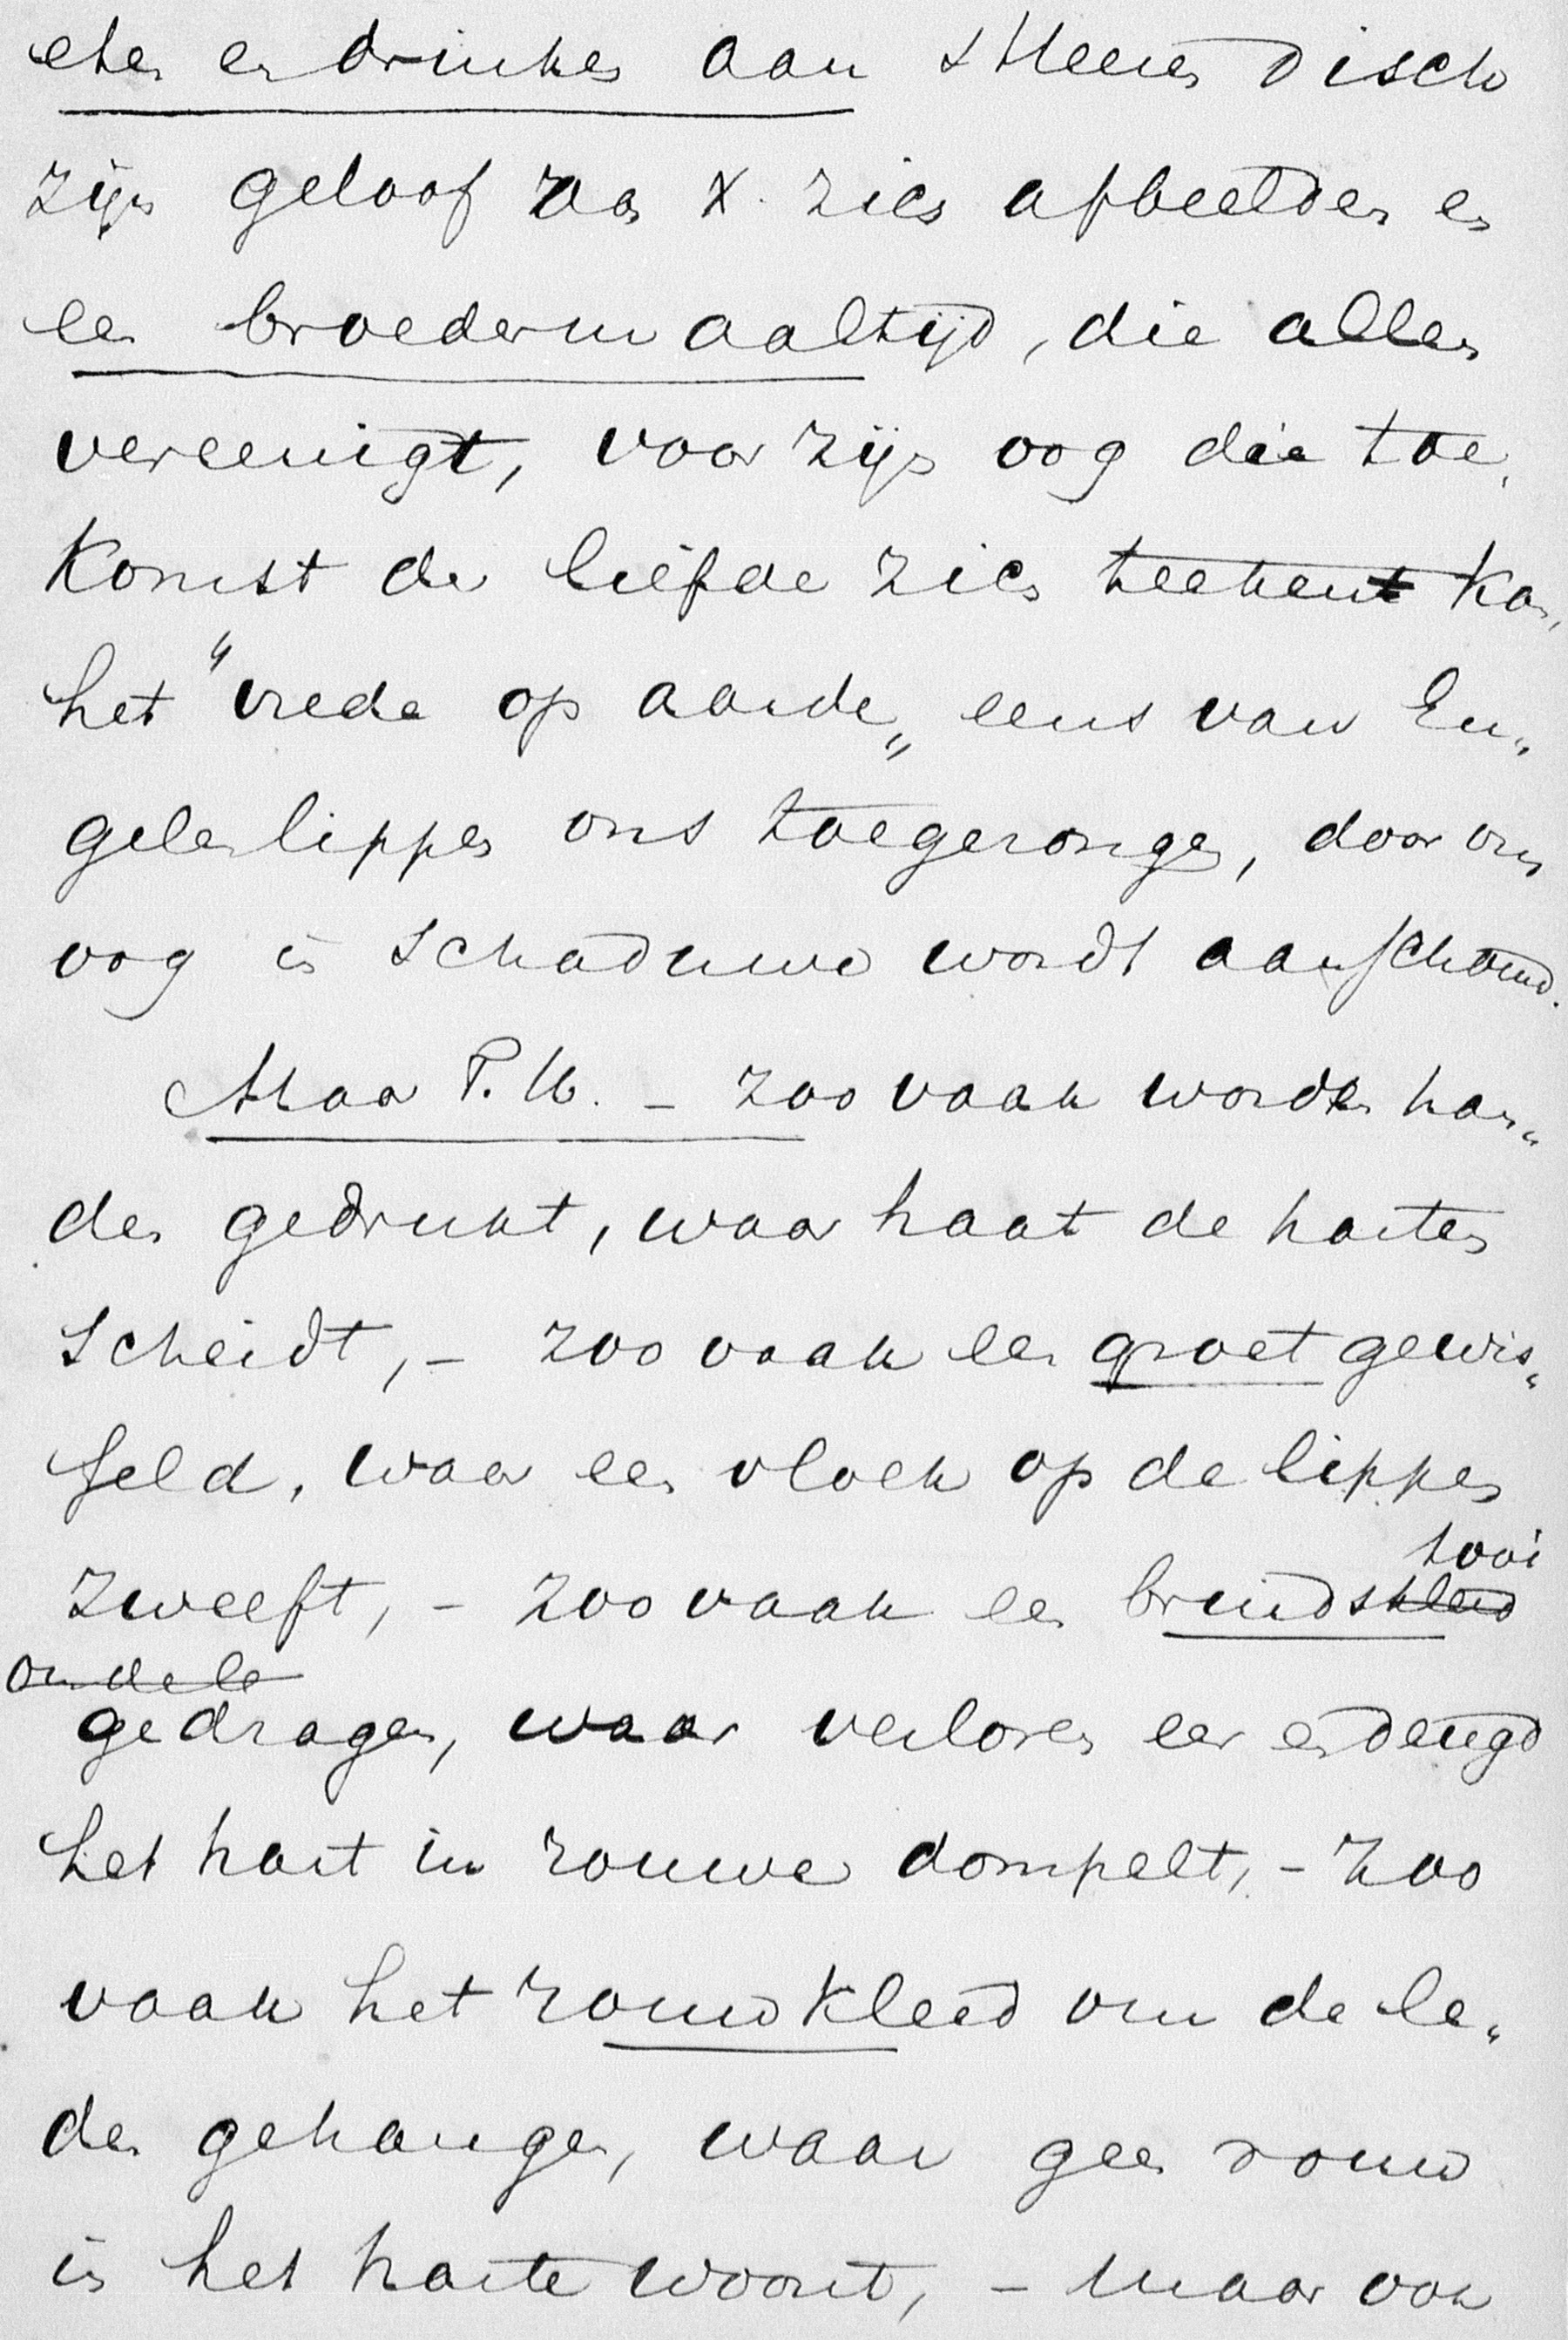 eten en drinken aan s Heeren Disch
zijn geloof van X. zich afbeelden en
een broedermaaltijd, die allen
vereenigt, voor zijn oog die toe„
komst der liefde zich teekent kan,
het "vrede op aarde„ eens van En„
gelenlippen ons toegezongen, door ons
oog in schaduwe wordt aanschouwd.
Maar T. H. – zoo vaak worden han„
den gedrukt, waar haat de harten
scheidt, – zoo vaak een groet gewis„
seld, waar een vloek op de lippen
zweeft, – zoo vaak een bruidskleed tooi
om de le
gedragen, waar verloren eer en deugd
het hart in rouwe dompelt, – zoo
vaak het rouwkleed om de le„
den gehangen, waar geen rouw
in het harte woont, – maar ook